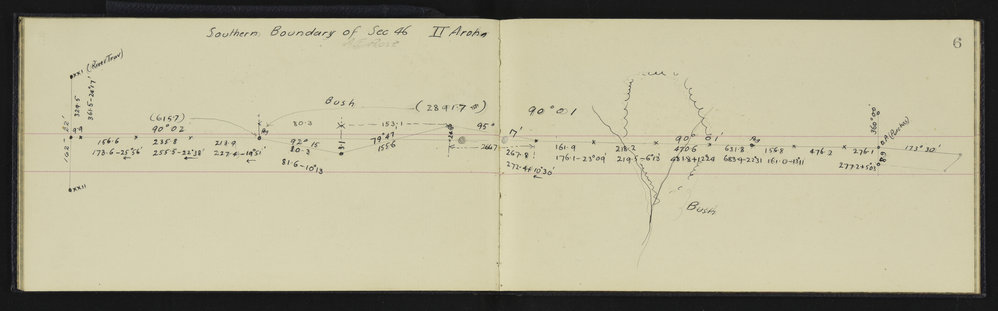 Southern Boundary of Sec 46 II Aroha
6
XXI (River Trav)
324.5
361.5-26°17'
Bush
(6157)
(28917
90°02
80.3
153.1
95°
90°01
17'
90° 01'
360°00'
99
156.6
235.8
213.9
92° 15
80.3
79°47
155.6
266.7
267.8
161.9
218.2
470.6
631.8
156.8
476.2
276.1
173°30'
173.6-25°56'
255.5-22°38'
227.4-19°51'
81.6-10°13
272.4+10°30'
176.1-23°09'
219.5-6°13'
481.8+12°29
683.9-22°31
161.0-13°11
277.2+5°03
XXII
Bush